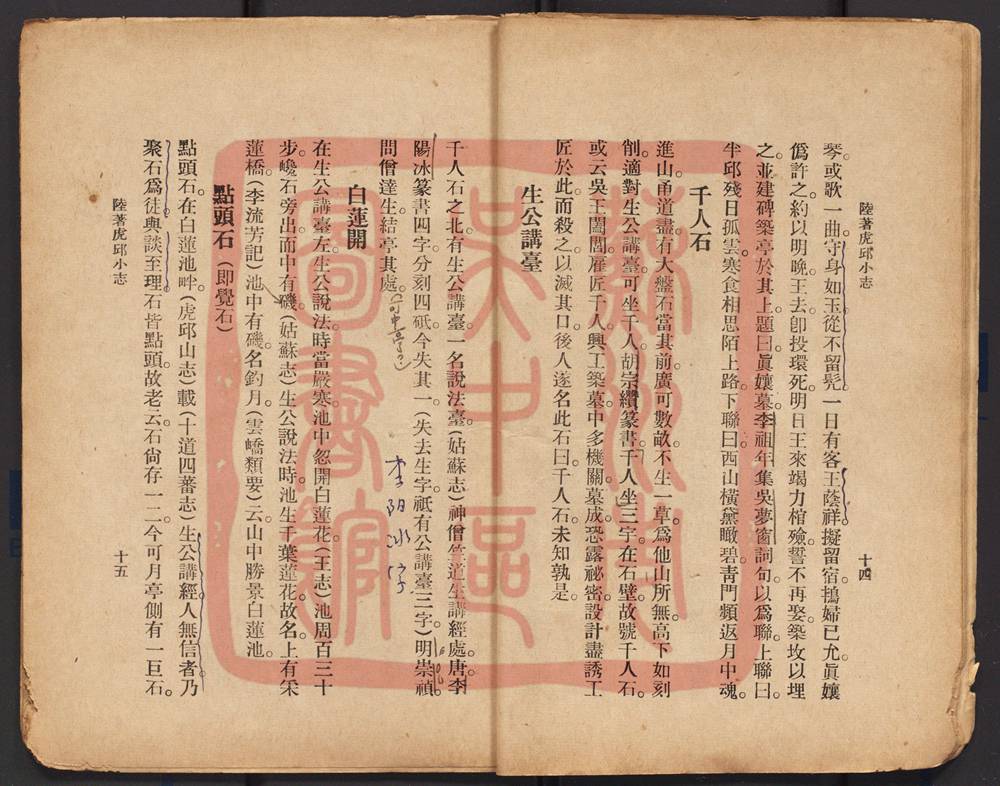 陸著虎邱小志
十四
琴。或歌一曲。守身如玉。從不留髡。一日有客王蔭祥。擬留宿。鴇婦已允。眞孃
僞許之。約以明晚。王去。卽投環死。明日王來。竭力棺殮。誓不再娶。築坟以埋
之。並建碑築亭於其上。題曰眞孃墓。李祖年集吳夢窗詞句。以爲聯。上聯曰。
半邱殘日孤雲。寒食相思陌上路。下聯曰。西山橫黛瞰碧。青門頻返月中魂。
千人石
進山甬道盡。有大盤石當其前。廣可數畝。不生一草。爲他山所無。高下如刻
削。適對生公講臺。可坐千人。胡宗纘篆書千人坐三字在石壁。故號千人石。
或云吳王闔閭。雇匠千人。興工築墓。中多機關。墓成。恐露祕密。設計盡誘工
匠於此而殺之。以滅其口。後人遂名此石曰千人石。未知孰是。
生公講臺
千人石之北。有生公講臺。一名說法臺。(姑蘇志)神僧竺道生講經處。唐李
陽冰篆書四字。分刻四砥。今失其一。(失去生字祇有公講臺三字)明崇禎。
問僧達生。結亭其處。
(可中亭?)
李陽冰字
白蓮開
在生公講臺左。生公說法時當嚴寒。池中忽開白蓮花。(王志)池周百三十
步。巉石旁出。而中有磯。(姑蘇志)生公說法時。池生千葉蓮花。故名。上有采
蓮橋。(李流芳記)池中有磯名釣月。(雲嶠類要)云山中勝景白蓮池。
點頭石(卽覺石)
點頭石。在白蓮池畔。(虎邱山志)載(十道四蕃志)生公講經。人無信者。乃
聚石爲徒。與談至理。石皆點頭。故老云。石尙存一二。今可月亭側有一巨石。
陸著虎邱小志
十五